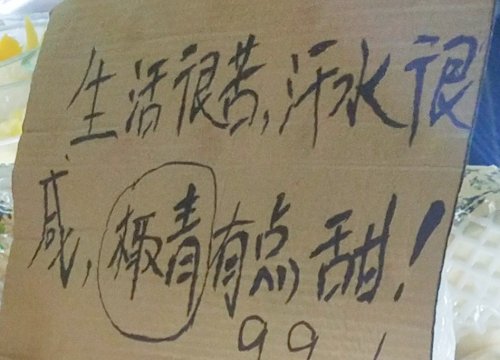 生活很苦,汗水很
咸,橄青有点甜!
99